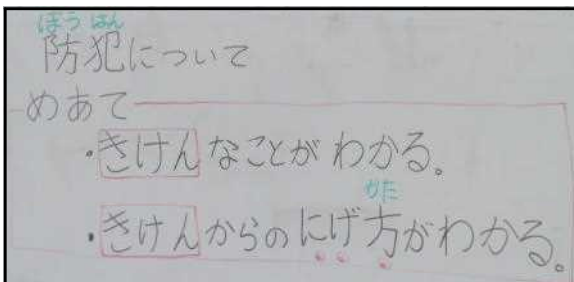 ぼうはん
防犯について
めあて
・きけんなことがわかる。
かた
・きけんからのにげ方がわかる。